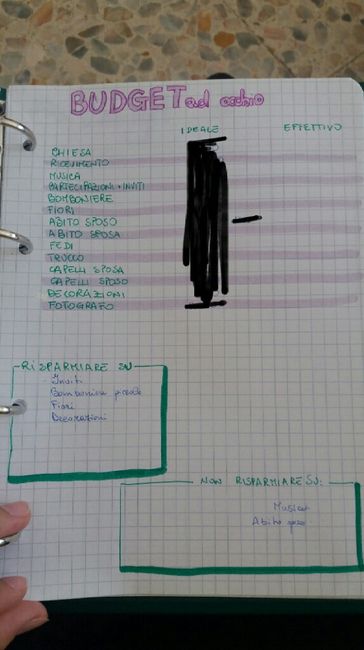 BUDGET ad occhio
IDEALE EFFETTIVO
CHIESA
RICEVIMENTO
MUSICA
PARTECIPAZIONI + INVITI
BOMBONIERE
FIORI
ABITO SPOSO
ABITO SPOSA
FEDI
TRUCCO
CAPELLI SPOSA
CAPELLI SPOSO
DECORAZIONI
FOTOGRAFO
RISPARMIARE SU
Inviti
Bomboniere piccole
Fiori
Decorazioni
NON RISPARMIARE SU:
Musica
Abito